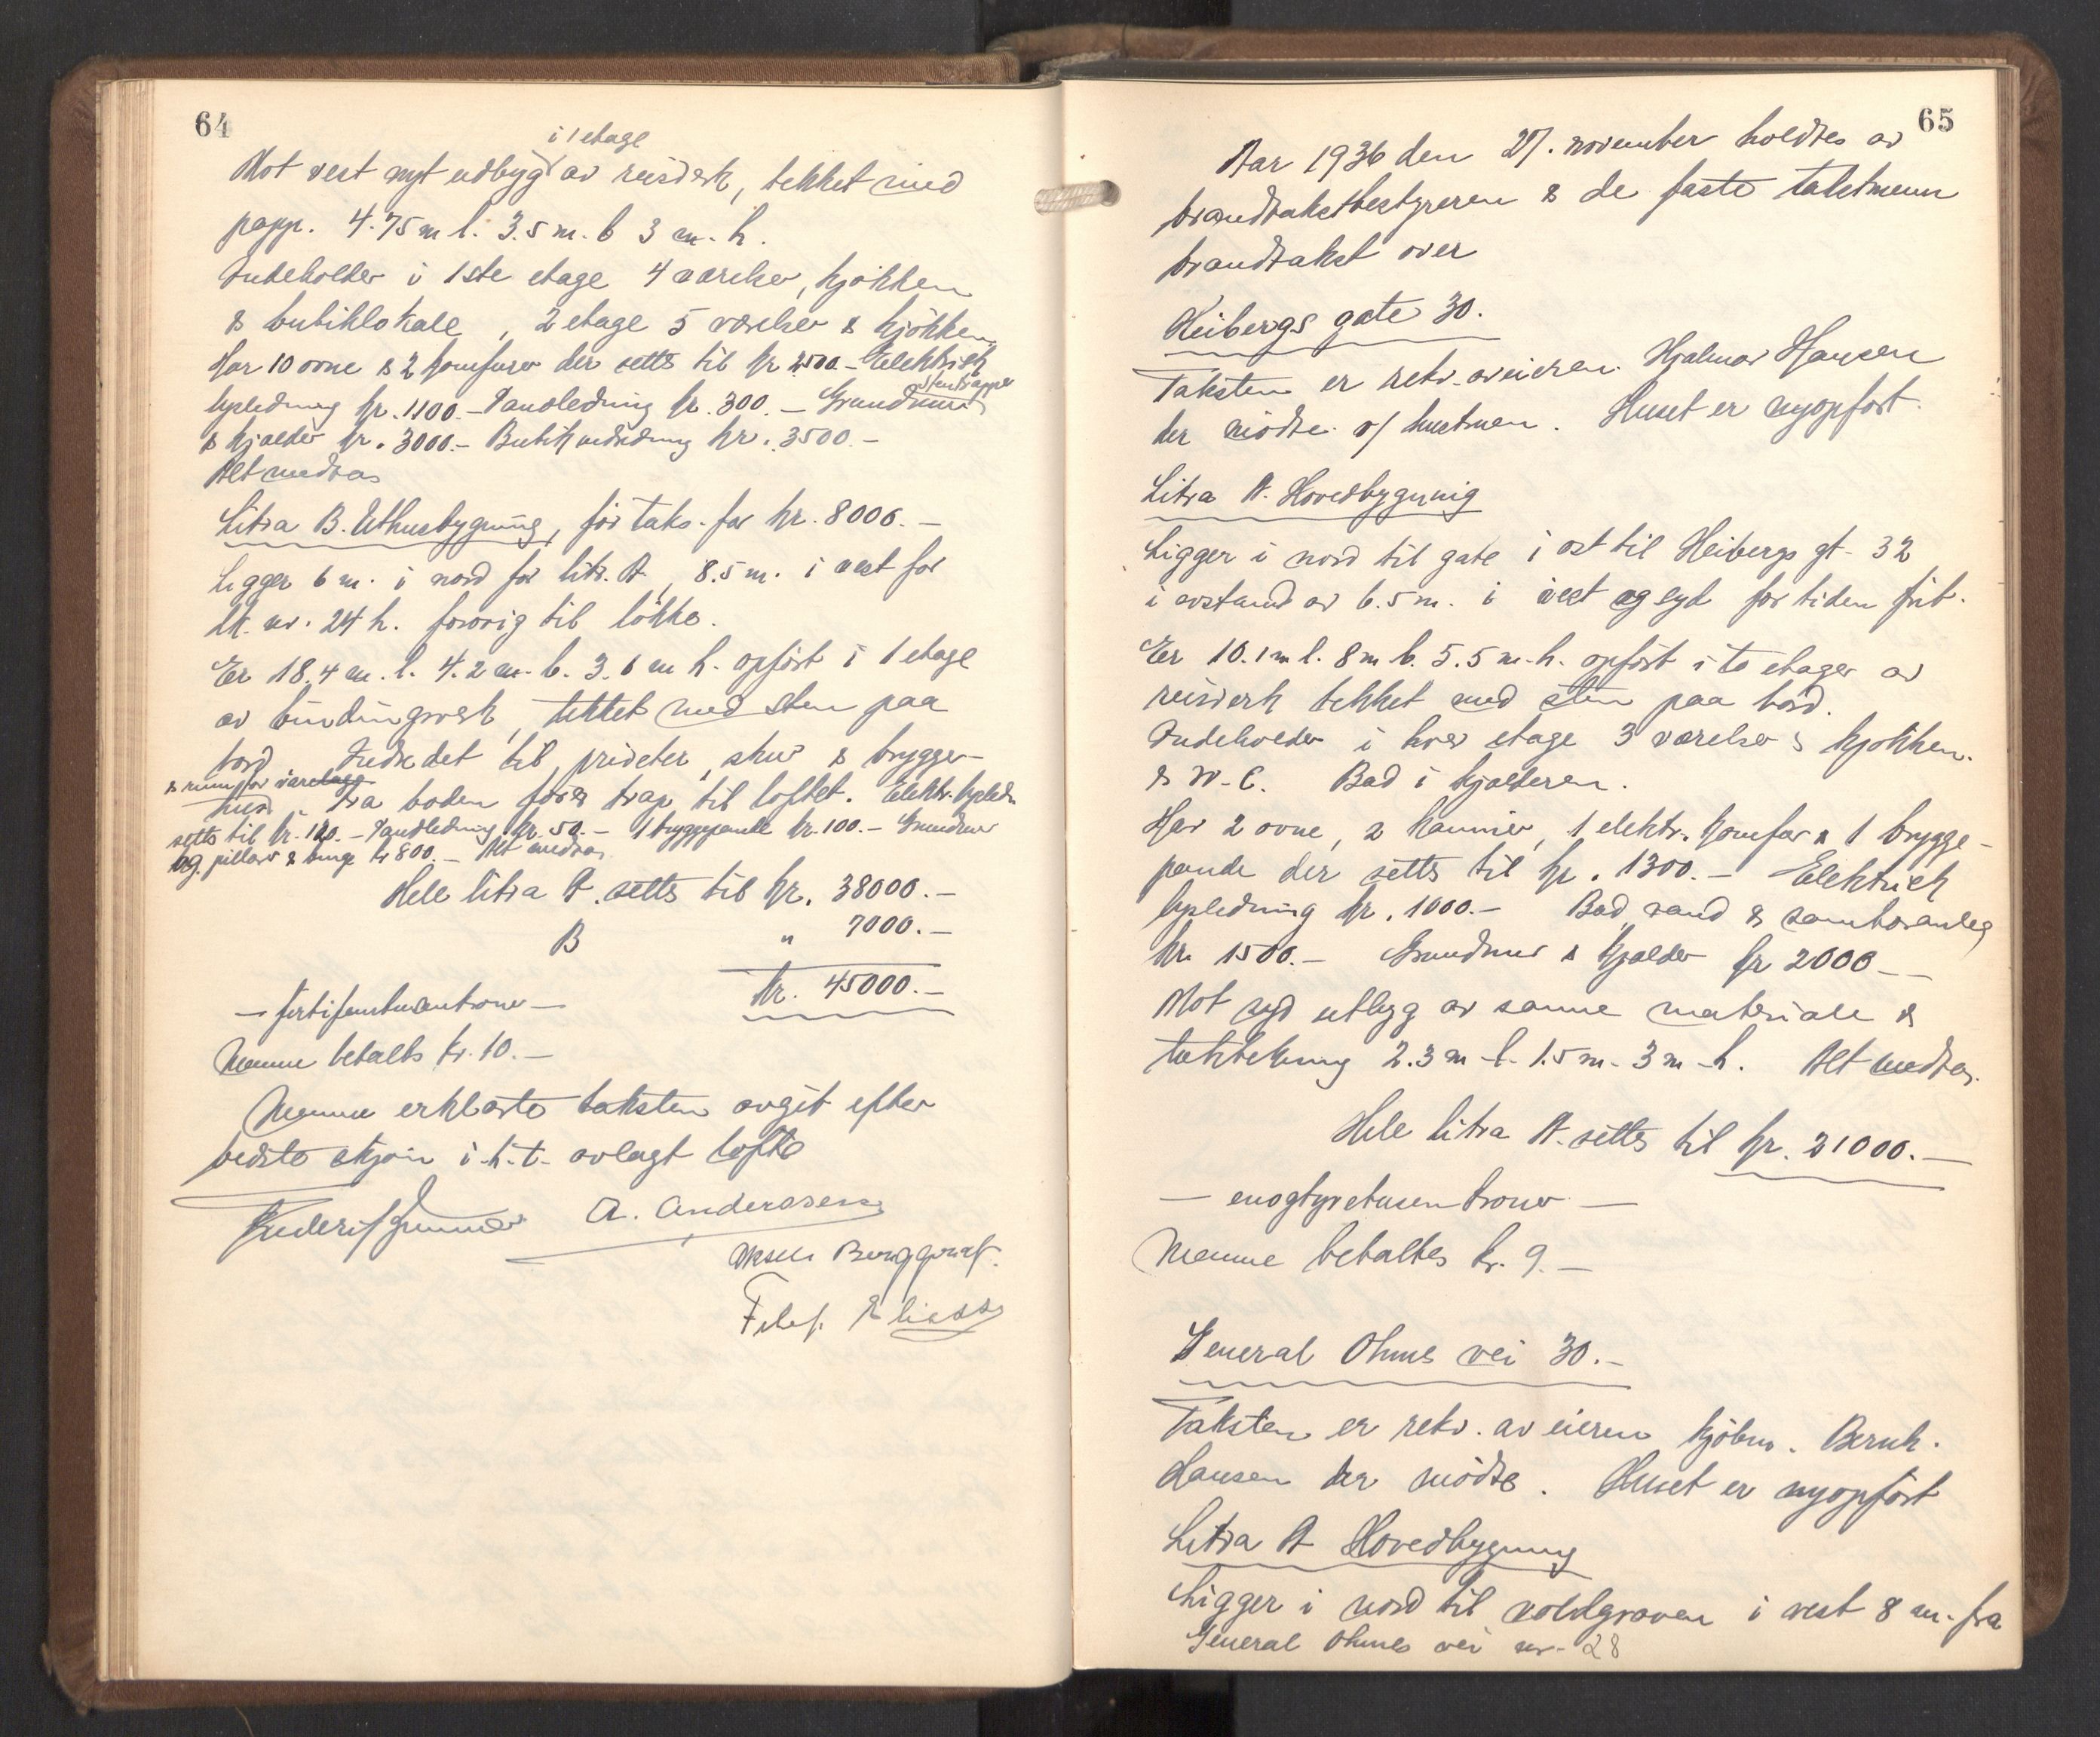 64
i 1 etage
Mot vest nyt udbyg av reisverk, tekket med
papp. 4.75 m l. 3.5 m. b 3 m. h.
Indeholder i 1ste etage 4 værelser, kjøkken
& butiklokale, 2 etage 5 værelser & kjøkken
Har 10 ovne & 2 komfurer der settes til kr 2500.- Elektrisk
stentrapper
lysledning kr. 1100.- Vandledning kr. 300.- Grundmur
& kjælder kr. 3000.- Butikindredning kr. 3500.-
Alt medtas
Litra B. Uthusbygning, før taks. for kr. 8000.-
Ligger 6 m. i nord for litr. A, 8.5 m. i vest for
M. nr. 24 h. forøvrig til løkke.
Er 18.4 m. l. 4.2 m. b. 3.6 m h. opført i 1 etage
av bindingsverk, tekket med sten paa
bord. Indredet til priveter, skur & brygger-
& rum for varelager
hus. Fra boden fører trap til loftet. Elektr. lysledn
settes til kr. 120.- Vandledning kr. 50.- 1 bryggepande kr. 100.- Grundmur
og pillarer & kr 800.- Alt medtas
Hele litra A. settes til kr. 38000.-
B " 7000.-
Kr. 45000.-
- førtifemtusenkroner -
Mænne betaltes kr. 10.-
Mænne erklærte taksten avgit efter
bedste skjøn i.h.t. avlagt løfte
A. Anderssen
Berggraf.
65
Aar 1936 den 27. november holdtes av
brandtakstbestyreren & de faste takstmenn
brandtakst over
Heibergs gate 30.
Taksten er rekv. av eieren Hjalmar Hansen
der mødte v/ hustruen. Huset er nyopført.
Litra A. Hovedbygning
Ligger i nord til gate i øst til Heibergs gt. 32
i avstand av 6.5 m. i vest og syd for tiden frit.
Er 10.1 m l. 8 m b. 5.5 m. h. opført i to etager av
reisverk tekket med sten paa bord.
Indeholder i hver etage 3 værelser & kjøkken.
& W.C. Bad i kjælderen.
Har 2 ovne, 2 kaminer, 1 elektr. komfur & 1 brygge-
pande der settes til kr. 1300.- Elektrisk
lysledning kr. 1000.- Bad, vand & sanitæranlæg
kr. 1500.- Grundmur & kjælder kr 2000.-
Mot syd utbygg av samme materiale &
taktekning 2.3 m l. 1.5 m. 3 m h. Alt medtas.
Hele litra A. settes til kr. 21000.-
- enogtyvetusenkroner -
Mænne betaltes kr. 9.-
General Ohmes vei 30.-
Taksten er rekv. av eieren kjøbm. Bernh.
Hansen der mødte. Huset er nyopført
Litra A Hovedbygning
Ligger i nord til voldgraven i vest 8 m. fra
General Ohmes vei nr. 28